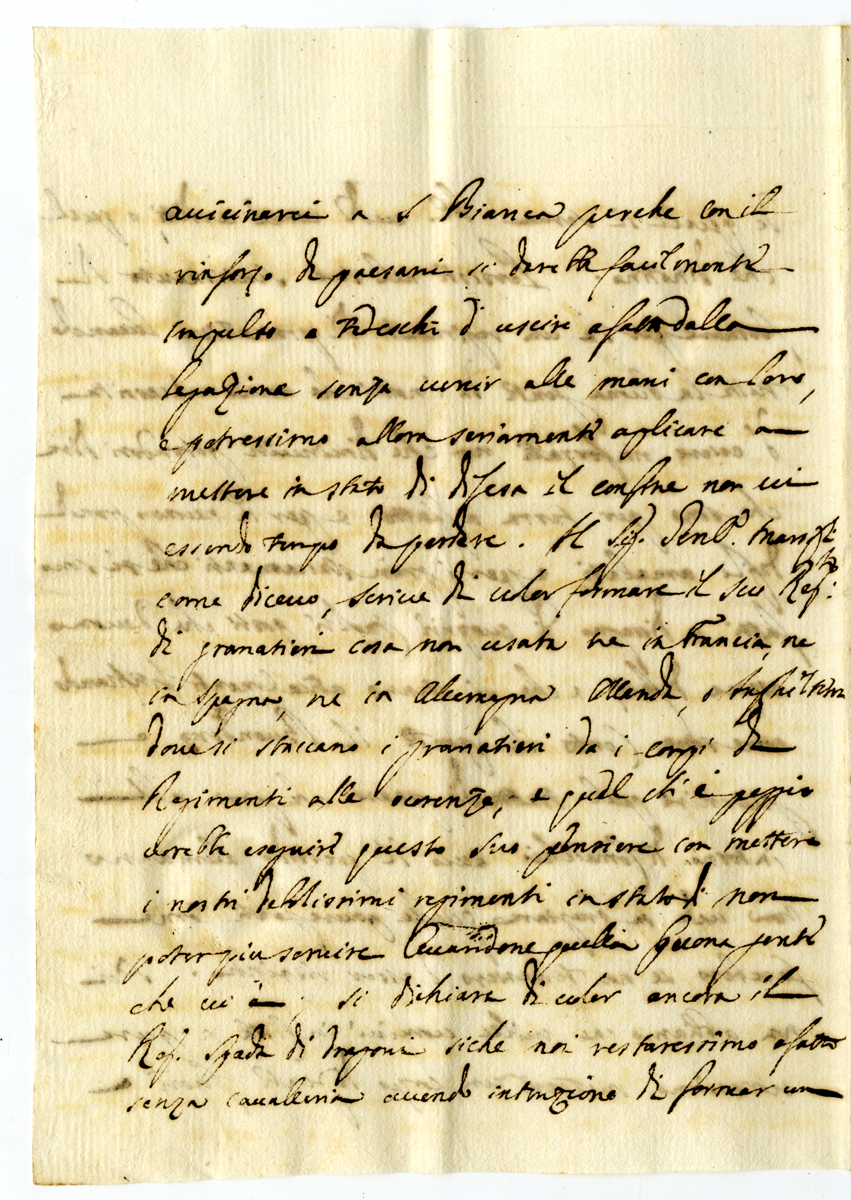 avicinarci a S Bianca perche con il
rinforzo di paesani si darebbe facilmente
impulso a Tedeschi d uscire afatto dalla
legazione senza venir alle mani con loro,
e potressimo allora seriamente aplicare a
mettere in stato di difesa il confine non vi
essendo tempo da perdere. Il Sig.r Genle.
come dicevo, scrive di voler formare il suo Reg.to
di granatieri cosa non usata ne in Francia, ne
in Spagna, ne in Alemagna Ollanda, o Inghilterra
dove si staccano i granatieri da i corpi de
Regimenti alle ocorenze, e quel ch'è peggio
vorebbe eseguire questo suo pensiere con mettere
i nostri debolissimi regimenti in stato di non
poter piu servire levandone quella buona gente
che vi è; si dichiara di voler ancora il
Reg. Spada di dragoni siche noi restaressimo afatto
senza cavalleria avendo intenzione di formar un